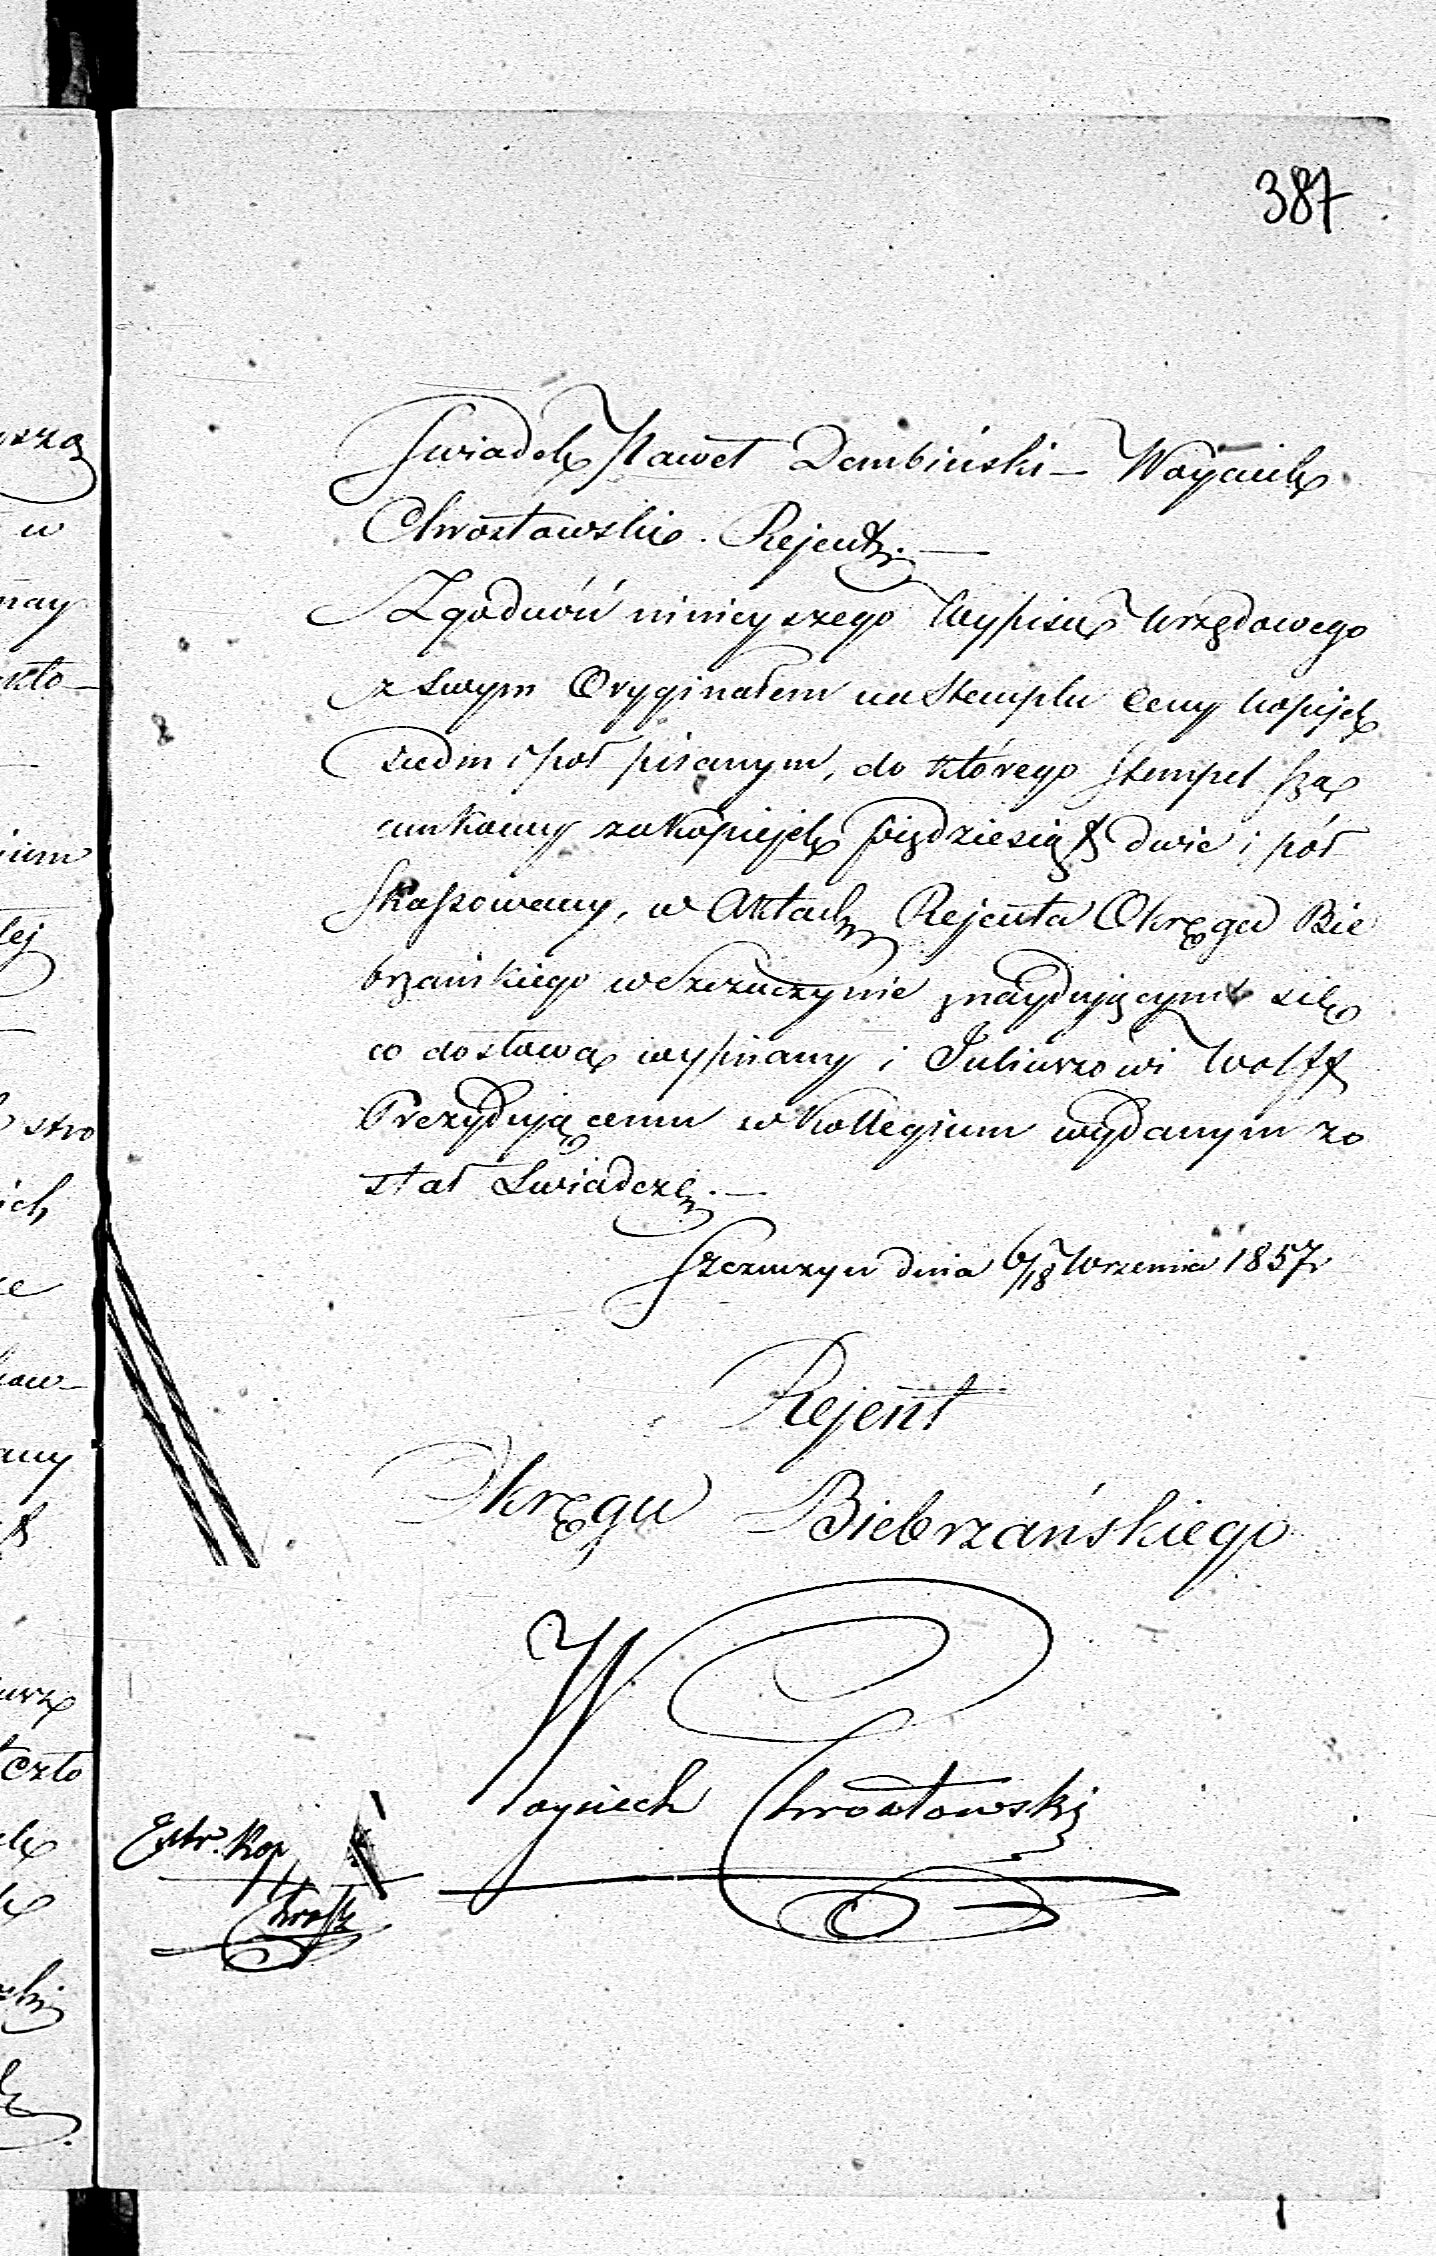 387
Swiadek Paweł Dembiński – Woyciech
Chrostowski. Rejent. —
Zgodność ninieyszego Wypisu Urzędowego
z swym Oryginałem na Stemplu Ceny kopijek
siedm i puł pisanym, do którego Stempel sza
cunkowy za kopiejek piędziesiąt dwie i pół
skassowany, w Aktach Rejenta Okręgu Bie
brzańskiego w Szczuczynie znaydującym się
co do słowa wypisany i Juliuszowi Wolff
Prezydującemu w Kollegium wydanym zo
stał Swiadczę. —
Szczuczyn dnia 6/18 Wrzesnia 1857 r
Rejent
Okręgu Biebrzańskiego
Woyciech Chrostowski
Extr. Kop
Chrost
yszą
w
nay
kto–
ium
łej
stro
ich
ce
kow–
any
czło
ski